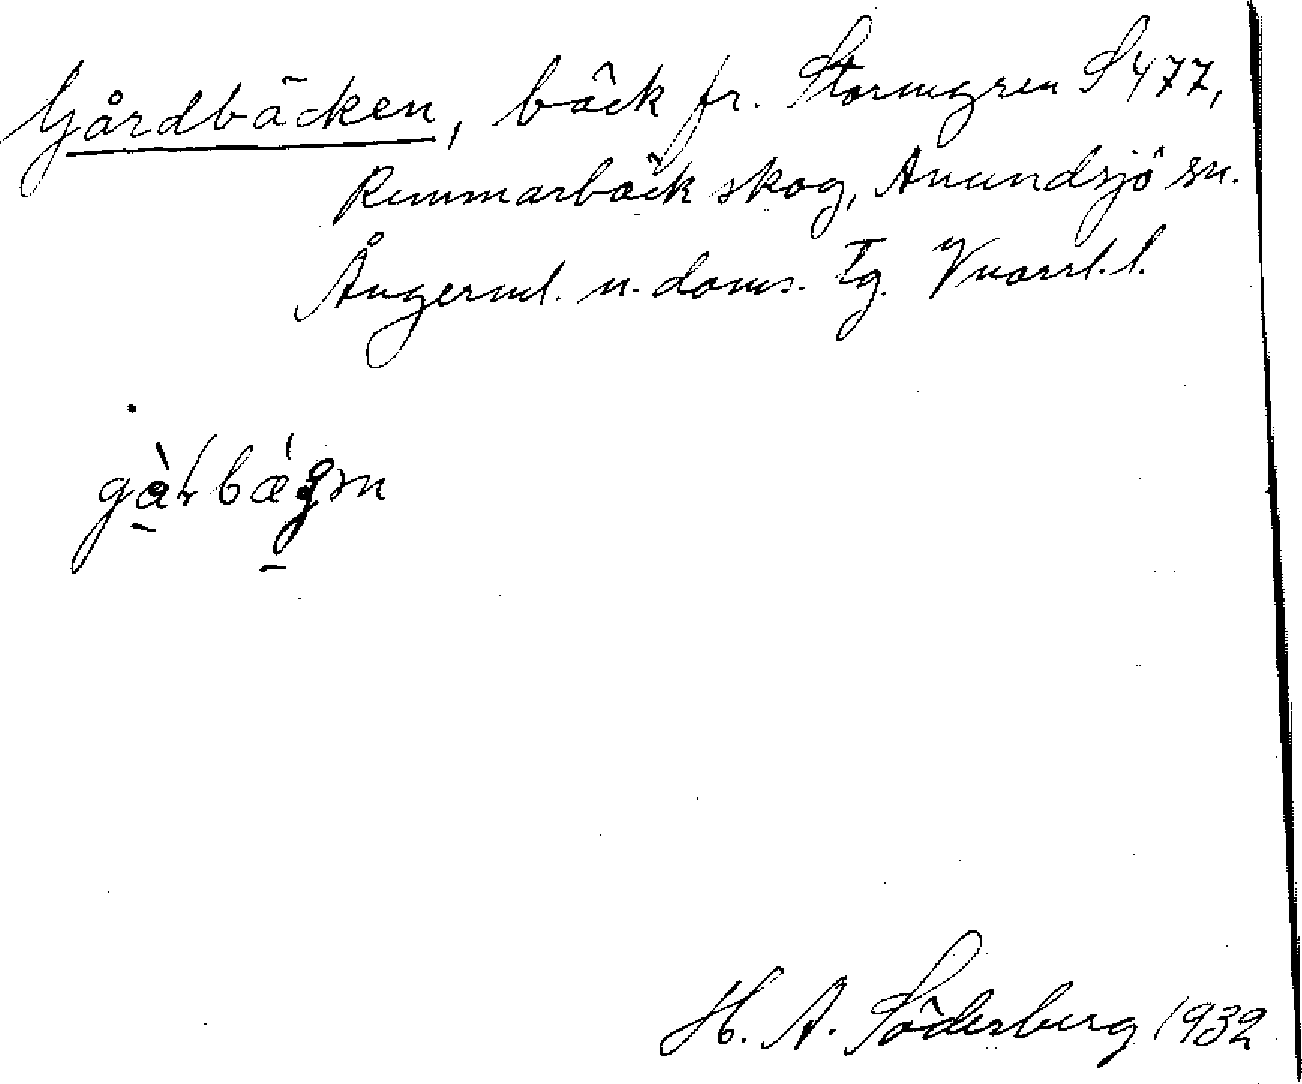 Gårdbäcken, bäck fr. Stormyren S 477,
Remmarbäck skog, Anundsjö sn.
Ångerml. n. doms. Tg. Västrl. l.
gårbæ̀gm
H. A. Söderberg 1932